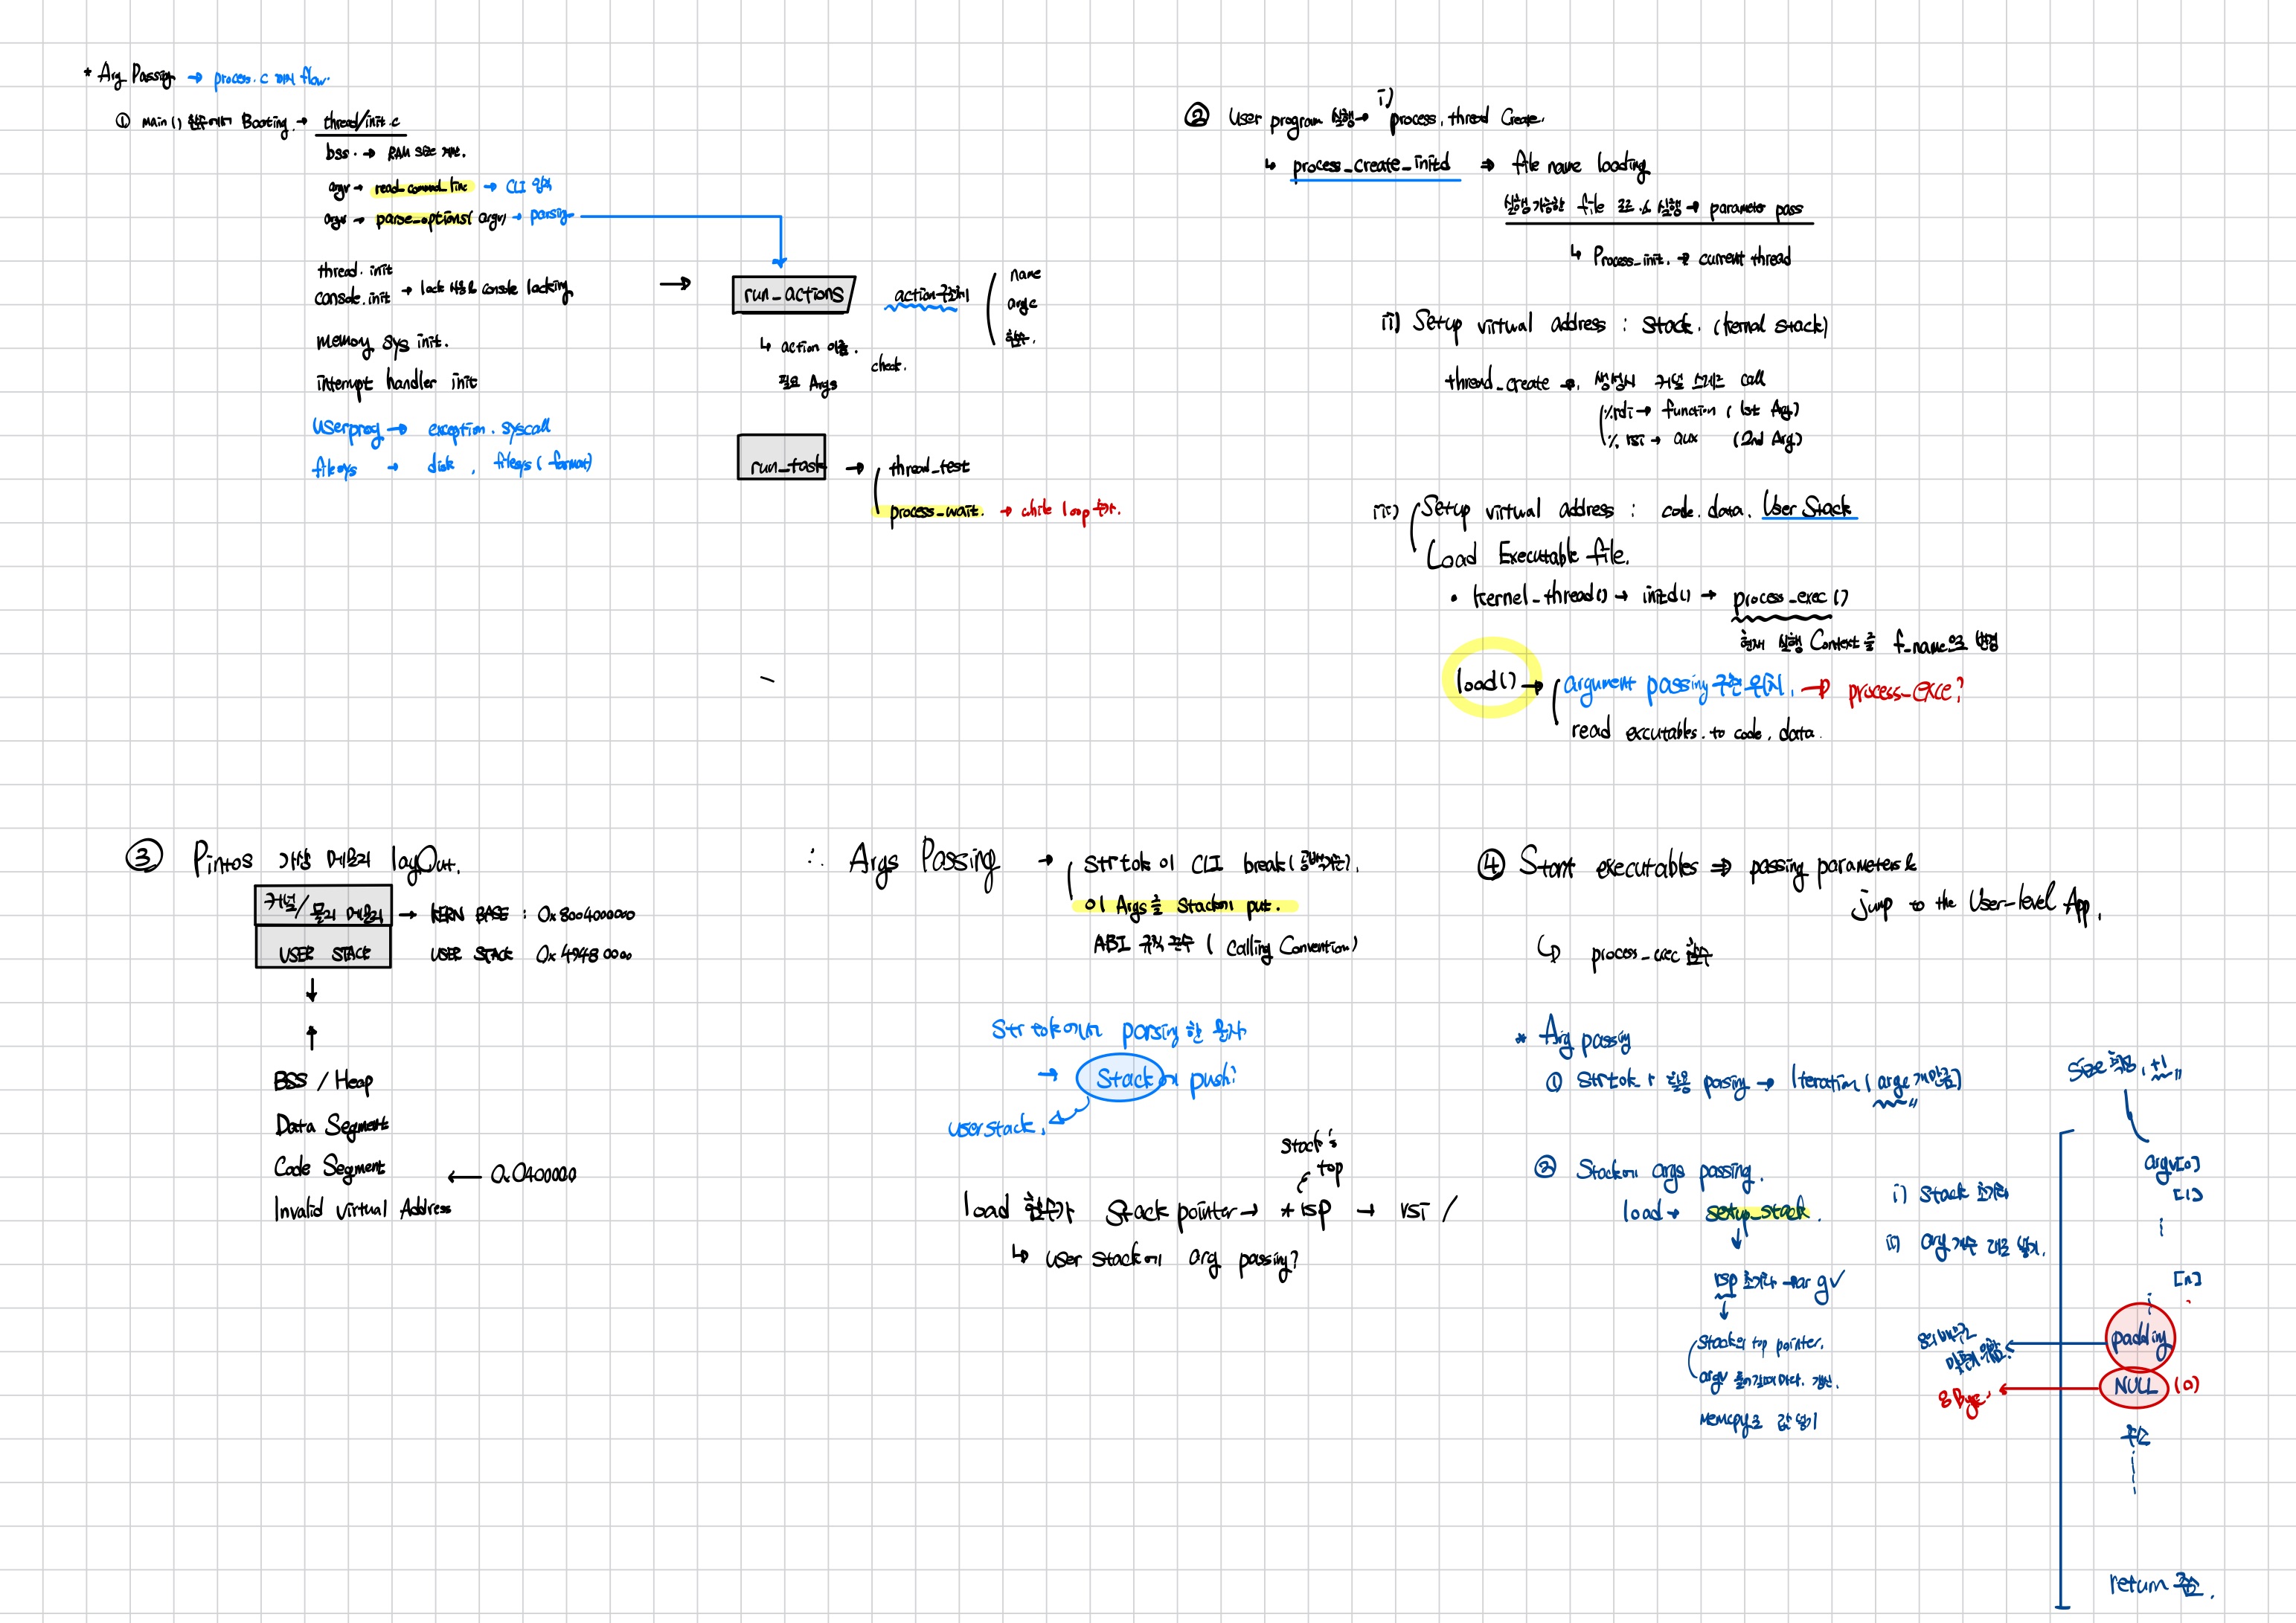 * Arg Passing → process.c 에서 flow.
① main() 함수에서 Booting. → thread/init.c
bss. → RAM size 계산.
argv → read_command_line → CLI
argv → parse_options(argv) → parsing
thread.init
console.init → lock 사용 console locking
memory sys init.
interrupt handler init
userprog → exception. syscall
filesys → disk, filesys (format)
→ run_actions
action 구조체 ( name
argc
함수.
↳ action 이름.
필요 Args
check.
run_task → ( thread_test
process_wait. → while loop 추가.
② User program 실행 → i) process, thread Create.
↳ process_create_initd ⇒ file name loading
실행가능한 file 로드 & 실행 → parameter pass
↳ Process_init. → current thread
ii) Setup virtual address : Stack. (kernal stack)
thread_create →. 생성시 커널 스레드 call
( %rdi → function (1st Arg)
( % rsi → aux (2nd Arg)
iii) ( Setup virtual address : code. data. User Stack
Load Executable file.
• kernel_thread() → initd() → process_exec()
현재 실행 Context를 f_name으로 변경
load() → ( argument passing 구현 위치. → process_exce?
read excutables. to code, data.
③ Pintos 가상 메모리 layOut.
커널/물리 메모리 → KERN BASE : 0x8004000000
USER STACK USER STACK 0x47480000
↓
↑
BSS / Heap
Data Segment
Code Segment ← 0x0400000
Invalid virtual Address
∴ Args Passing → ( strtok 이 CLI break (공백기준).
이 Args를 Stack에 put.
ABI 규칙 준수 ( Calling Convention)
Strtok에서 parsing한 문자
→ Stack에 push!
user stack.
stack's
top
load 함수가 Stack pointer → *rsp → rsi /
↳ user stack에 arg passing?
④ Start executables ⇒ passing parameters &
jump to the User-level App.
↳ process_exec 함수
* Arg passing
① strtok_r 활용 parsing → Iteration (argc 개만큼)
② Stack에 args passing.
load → setup_stack.
↓
rsp 초기화 → argv
↓
( Stack의 top pointer.
argv 들어갈때마다. 갱신.
memcpy로 값 넣기
i) stack 초기화
ii) arg 개수 대로 넣기.
size 측정, +1
argv[0]
[1]
[n]
padding
8의 배수로 맞춰야함.
NULL (0)
8 Byte.
주소
return 주소.